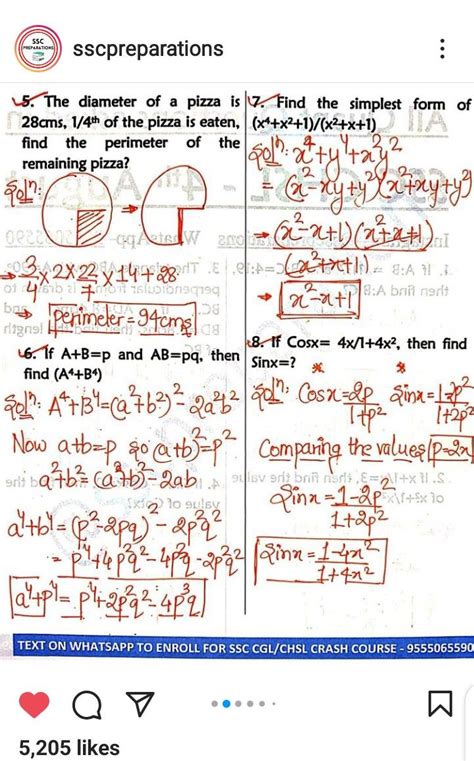 SSC
PREPARATIONS
sscpreparations
5. The diameter of a pizza is
28cms, 1/4th of the pizza is eaten,
find the perimeter of the
remaining pizza?
Solⁿ:
→ 3/4 × 2 × 22/7 × 14 + 28
→ Perimeter = 94cms
6. If A+B=p and AB=pq, then
find (A⁴+B⁴)
Solⁿ: A⁴+B⁴=(a²+b²)²-2a²b²
Now a+b=p so (a+b)²=p²
a²+b²=(a+b)²-2ab
a⁴+b⁴=(p²-2pq)²-2p²q²
= p⁴+4p²q²-4p³q-2p²q²
a⁴+p⁴=p⁴+2p²q²-4p³q
7. Find the simplest form of
(x⁴+x²+1)/(x²+x+1)
Solⁿ: x⁴+y⁴+x²y²
=(x²-xy+y²)(x²+xy+y²)
→ (x²-x+1)(x²+x+1)
(x²+x+1)
→ x²-x+1
8. If Cosx= 4x/1+4x², then find
Sinx=?
Solⁿ: Cosx=2p/1+p² Sinx=1-p²/1+2p²
Comparing the values p=2x
Sinx=1-2p²/1+2p²
Sinx=1-4x²/1+4x²
TEXT ON WHATSAPP TO ENROLL FOR SSC CGL/CHSL CRASH COURSE - 9555065590
5,205 likes